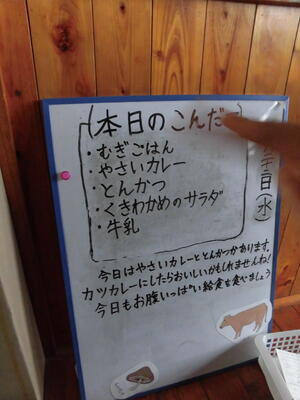 本日のこんだ
・むぎごはん
・やさいカレー
・とんかつ
・くきわかめのサラダ
・牛乳
日(水)
今日はやさいカレーととんかつがあります。
カツカレーにしたらおいしいかもしれませんね!
今日もお腹いっぱい給食を食べましょう